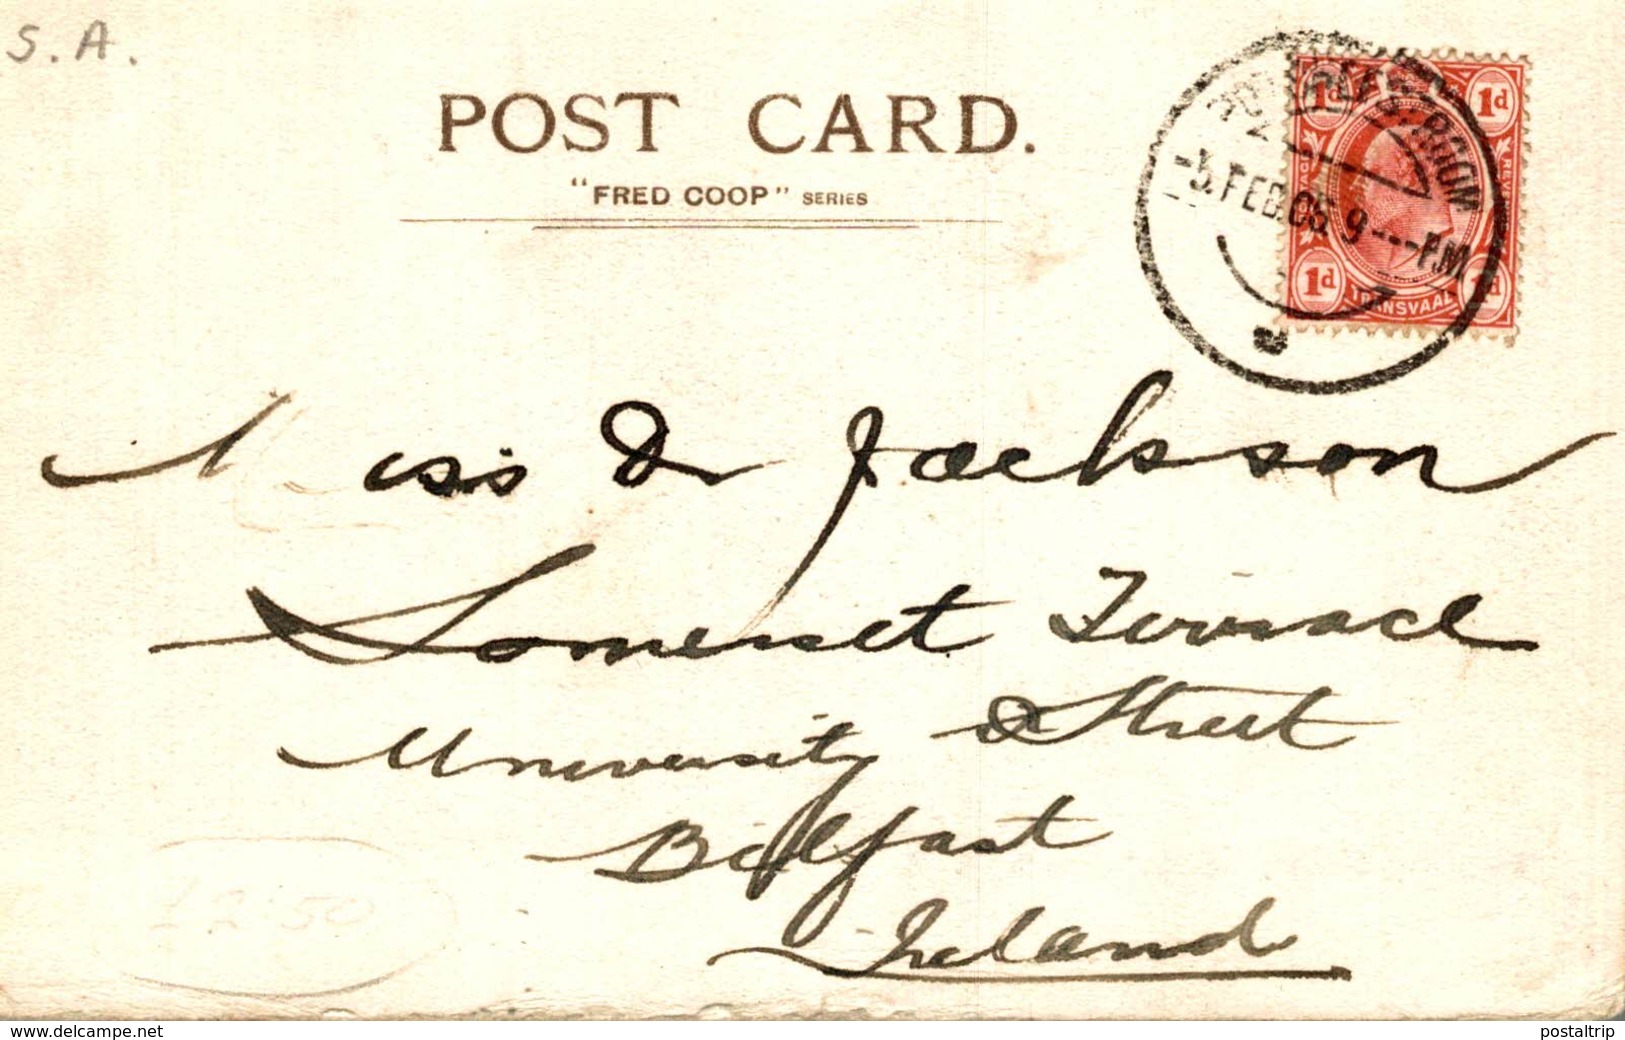 S. A.
POST CARD.
"FRED COOP" SERIES
POTCHEFSTROOM
-5. FEB. 06 9---P.M.
1d 1d
1d 1d
TRANSVAAL
Miss D Jackson
Somerset Terrace
University Street
Belfast
Ireland
£2.50
www.delcampe.net
postaltrip